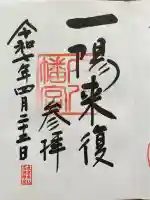 一陽来復
参拝
幡宮
令和七年四月二十二日